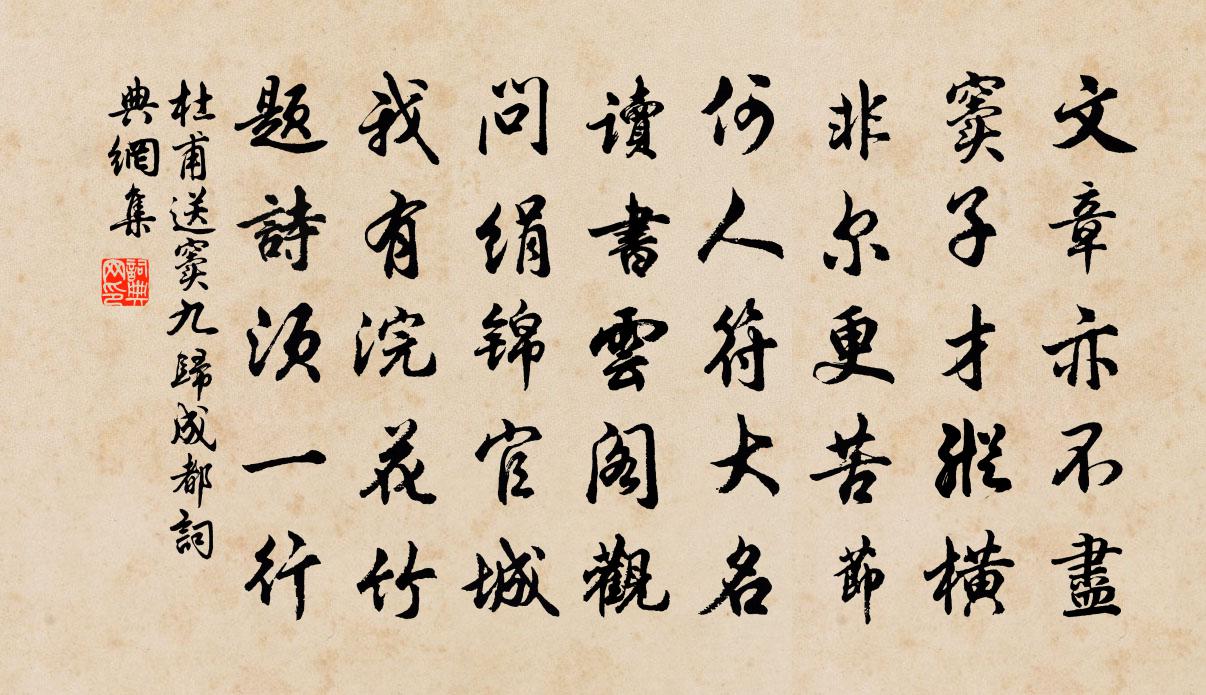 文章亦不盡
竇子才縱橫
非尔更苦節
何人符大名
讀書雲閣觀
問絹錦官城
我有浣花竹
题詩須一行
杜甫送竇九歸成都詞
典網集
詞典
网印